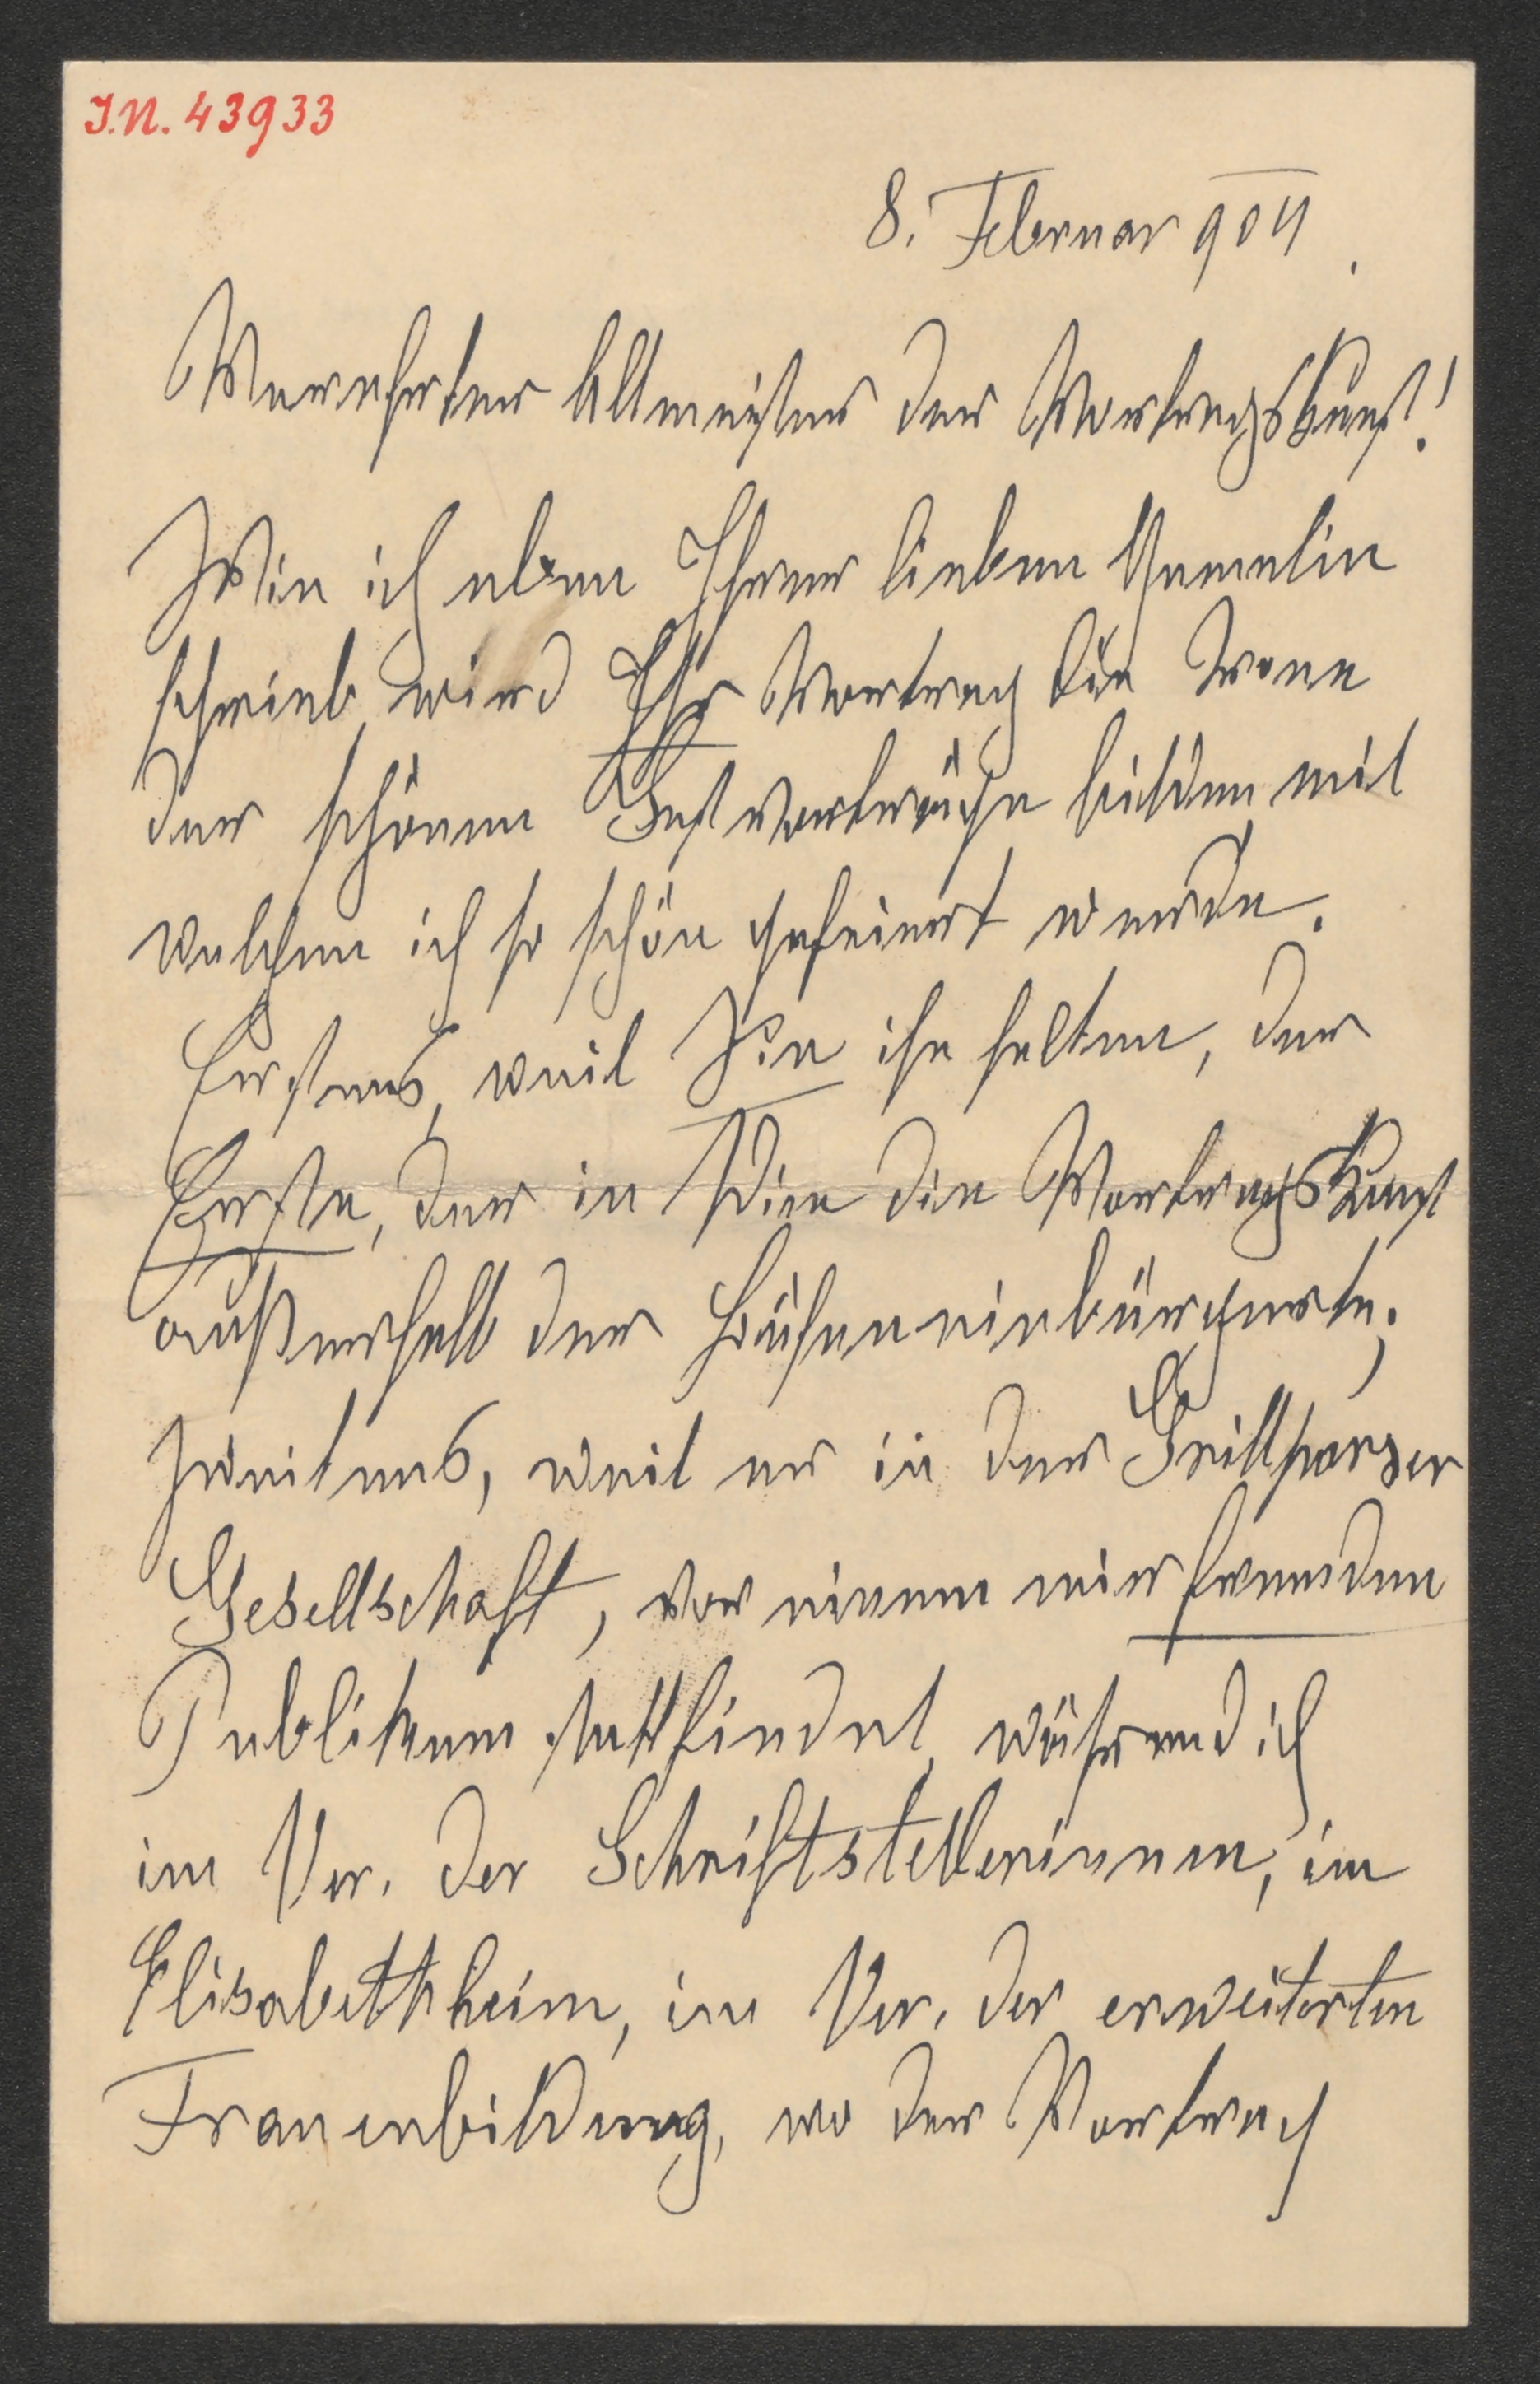 I.N. 43933
8. Februar 904.
Verehrter Altmeister der Vortragskunst!
Wie ich eben Ihrer lieben Gemalin
schrieb, wird Ihr Vortrag die Krone
der schönen Festvorträge bilden, mit
welchen ich so schön gefeiert werde.
Erstens, weil Sie ihn halten, der
Erste, der in Wien die Vortragskunst
außerhalb der Bühne einbürgerte;
zweitens, weil er in der Grillparzer
Gesellschaft, vor einem mir fremden
Publikum stattfindet, während ich
im Ver. der Schriftstellerinnen, im
Elisabethheim, im Ver. der erweiterten
Frauenbildung, wo der Vortrag